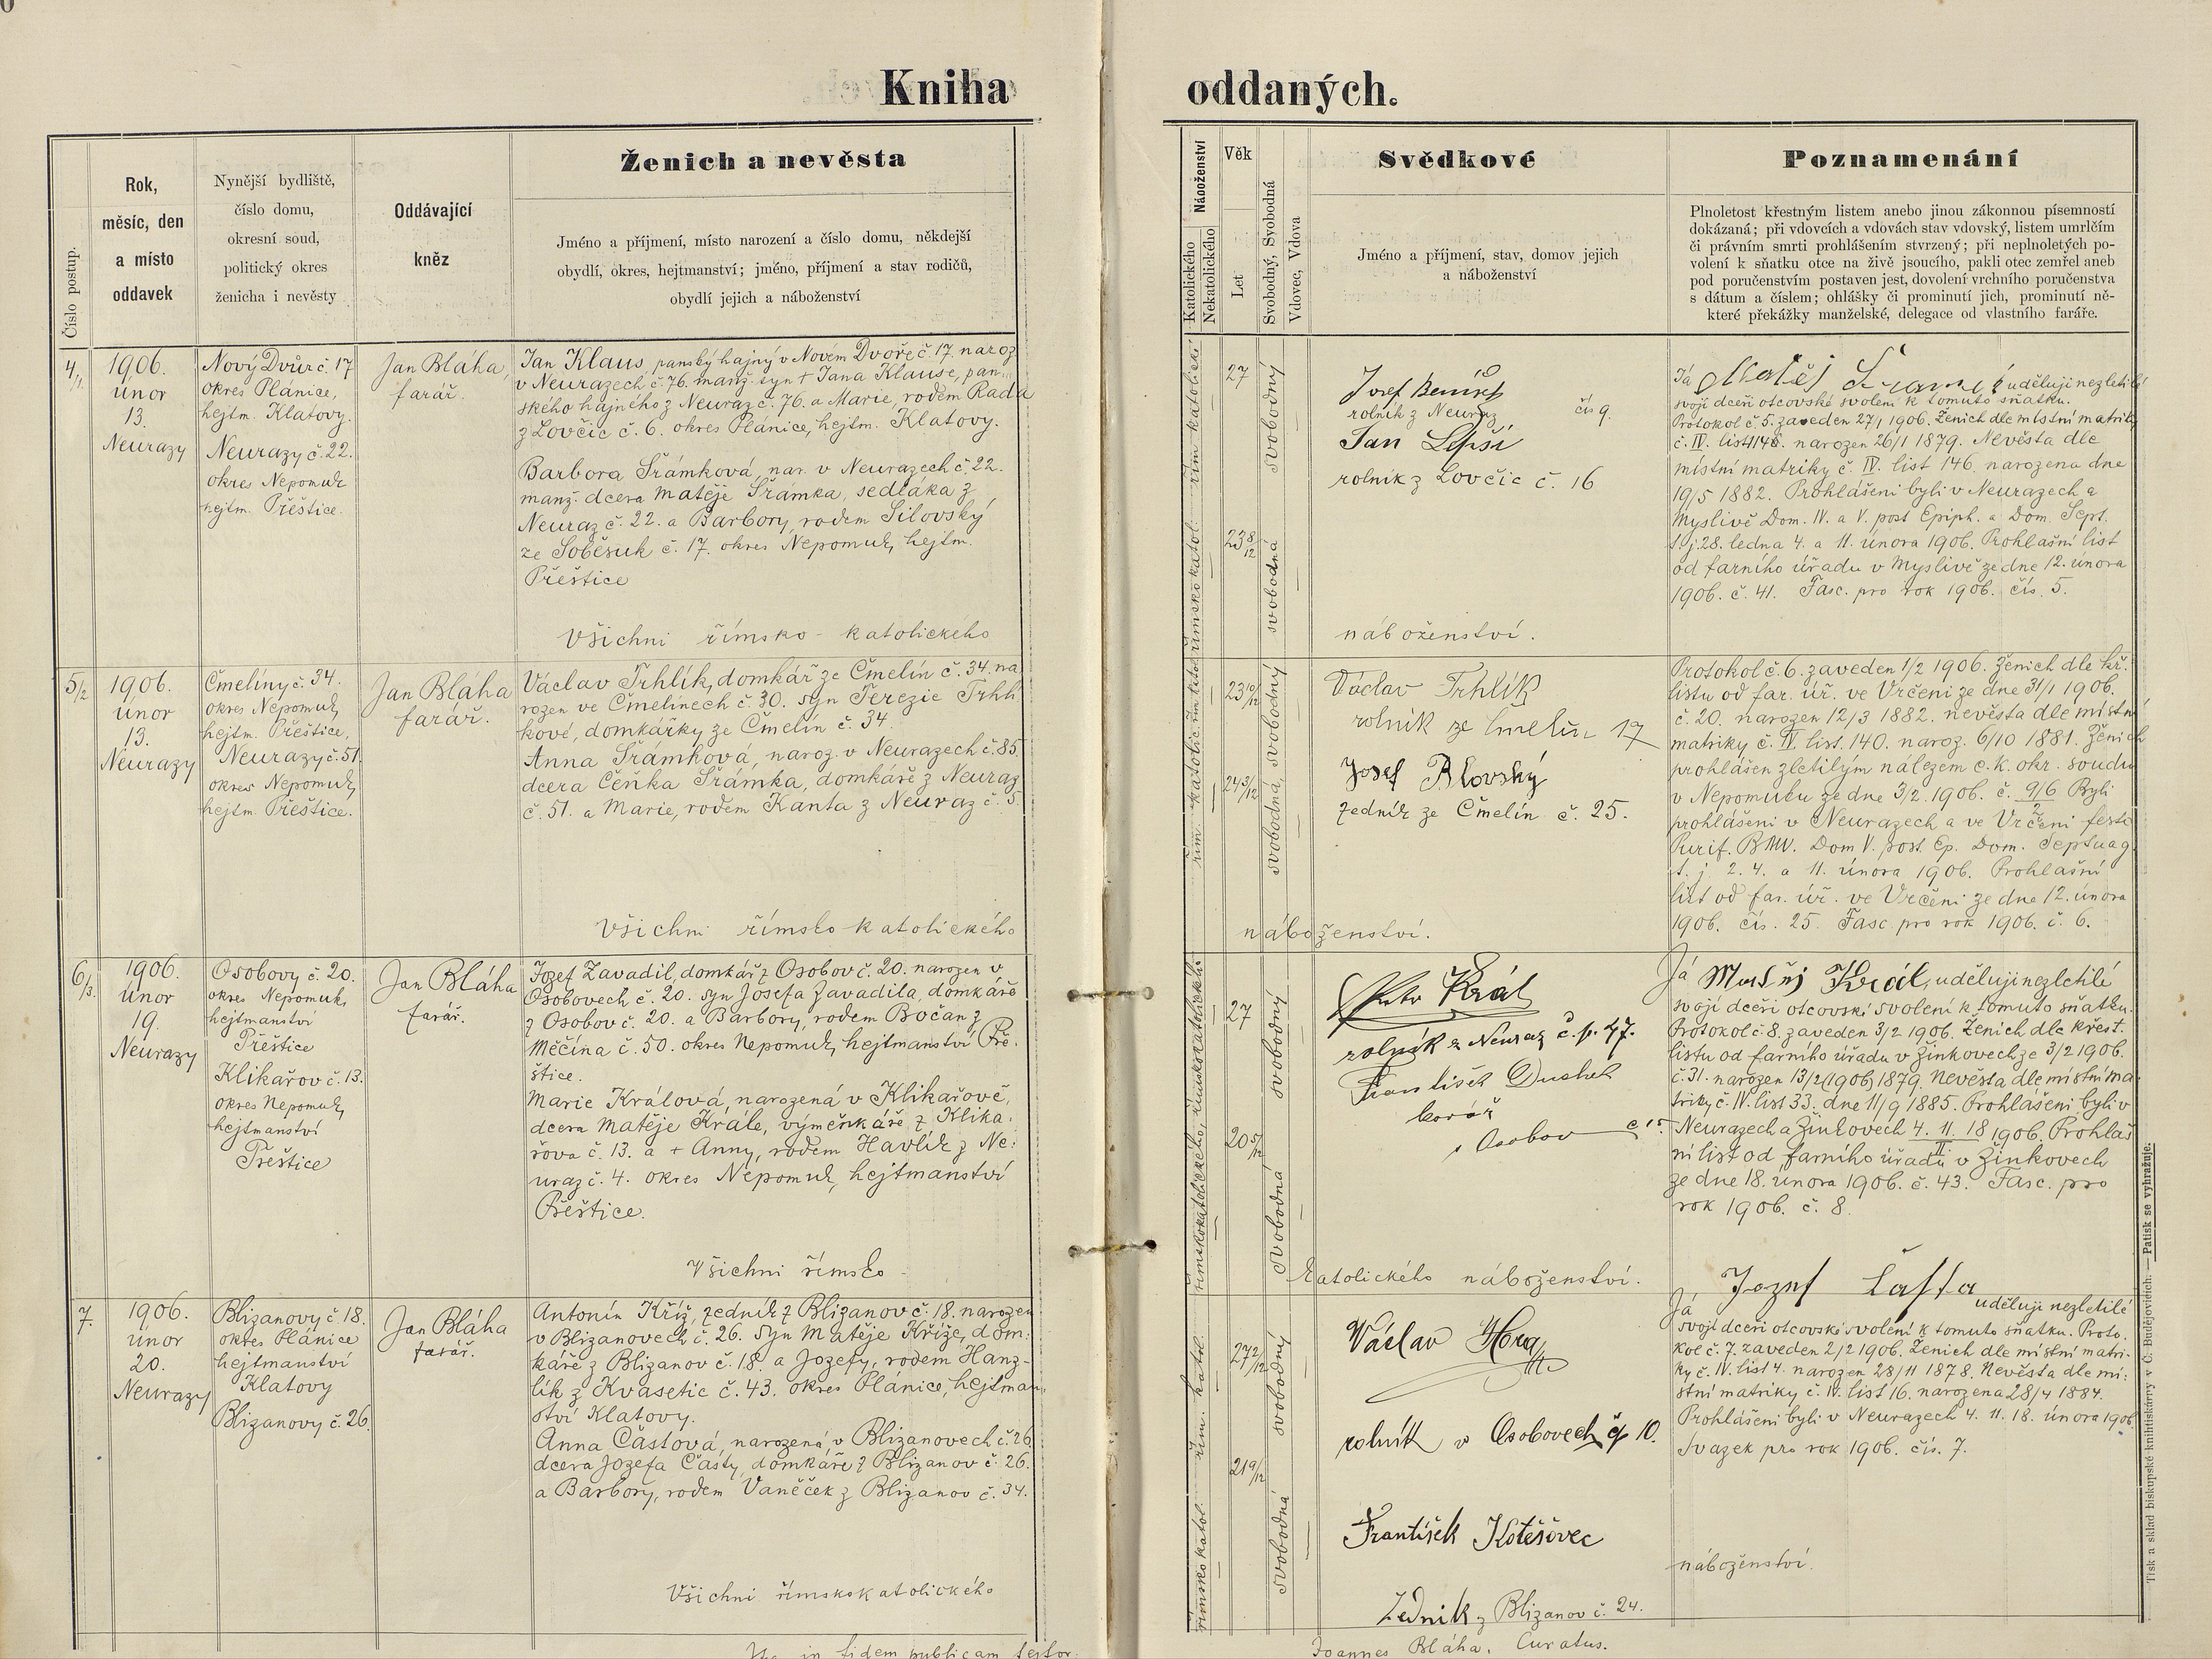 Kniha oddaných.
Číslo postup.
Rok,
měsíc, den
a místo
oddavek
Nynější bydliště,
číslo domu,
okresní soud,
politický okres
ženicha i nevěsty
Oddávající
kněz
Ženich a nevěsta
Jméno a příjmení, místo narození a číslo domu, někdejší
obydlí, okres, hejtmanství; jméno, příjmení a stav rodičů,
obydlí jejich a náboženství
Náboženství
Katolického
Nekatolického
Věk
Let
Svobodný, Svobodná
Vdovec, Vdova
Svědkové
Jméno a příjmení, stav, domov jejich
a náboženství
Poznamenání
Plnoletost křestným listem anebo jinou zákonnou písemností
dokázaná; při vdovcích a vdovách stav vdovský, listem umrlčím
či právním smrti prohlášením stvrzený; při neplnoletých po-
volení k sňatku otce na živě jsoucího, pakli otec zemřel aneb
pod poručenstvím postaven jest, dovolení vrchního poručenstva
s dátum a číslem; ohlášky či prominutí jich, prominutí ně-
které překážky manželské, delegace od vlastního faráře.
4/1.
1906.
únor
13.
Neurazy
Nový Dvůr č. 17
okres Plánice,
hejtm. Klatovy.
Neurazy č. 22.
okres Nepomuk
hejtm. Přeštice.
Jan Bláha,
farář.
Jan Klaus, panský hajný v Novém Dvoře č. 17. naroz.
v Neurazech č. 76. manž. syn + Jana Klause, pan-
ského hajného z Neuraz č. 76. a Marie, rodem Rada
z Lovčic č. 6. okres Plánice, hejtm. Klatovy.
Barbora Šrámková, nar. v Neurazech č. 22.
manž. dcera Matěje Šrámka, sedláka z
Neuraz č. 22. a Barbory, rodem Silovský
ze Soběsuk č. 17. okres Nepomuk, hejtm.
Přeštice
Všichni římsko-katolického
řím. katolické
římsko katol.
27
23 8/12
svobodný
svobodná
Josef
rolník z Neuraz čís 9.
Jan Lepší
rolník z Lovčic č. 16
náboženství.
Já Matěj uděluji nezletilé
svojí dceři otcovské svolení k tomuto sňatku.
Protokol č. 5. zaveden 27/1 1906. Ženich dle místní matriky
č. IV. list 114. narozen 26/1 1879. Nevěsta dle
místní matriky č. IV. list 146. narozena dne
19/5 1882. Prohlášeni byli v Neurazech a
Myslivě Dom. IV. a V. post Epiph. a Dom. Sept.
t. j. 28. ledna 4. a 11. února 1906. Prohlašní list
od farního úřadu v Myslivě ze dne 12. února
1906. č. 41. Fasc. pro rok 1906. čís. 5.
5/2
1906.
únor
13.
Neurazy
Čmelíny č. 34.
okres Nepomuk,
hejtm. Přeštice,
Neurazy č. 51.
okres Nepomuk,
hejtm. Přeštice.
Jan Bláha
farář.
Václav Trhlík, domkář ze Čmelín č. 34. na
rozen ve Čmelínech č. 30. syn Terezie Trhlí
kové, domkářky ze Čmelín č. 34.
Anna Šrámková, naroz. v Neurazech č. 85.
dcera Čeňka Šrámka, domkáře z Neuraz
č. 51. a Marie, rodem Kanta z Neuraz č. 5.
Všichni římsko-katolického
řím. katolic.
řím. katol.
23 10/12
24 3/12
svobodný
svobodná
Václav Trhlík
rolník ze Čmelín 17
Josef Blovský
zedník ze Čmelín č. 25.
náboženství.
Protokol č. 6. zaveden 1/2 1906. Ženich dle kř.
listu od far. úř. ve Vrčeni ze dne 31/1 1906.
č. 20. narozen 12/3 1882. nevěsta dle místní
matriky č. IV. list. 140. naroz. 6/10 1881. Ženich
prohlášen zletilým nálezem c. k. okr. soudu
v Nepomuku ze dne 3/2. 1906. č. 9/6 2 Byli
prohlášeni v Neurazech a ve Vrčeni festo
Purif. BMV. Dom V. post. Ep. Dom. Septuag.
t. j. 2. 4. a 11. února 1906. Prohlašní
list od far. úř. ve Vrčeni ze dne 12. února
1906. čís. 25. Fasc. pro rok 1906. č. 6.
6/3.
1906.
únor
19.
Neurazy
Osobovy č. 20.
okres Nepomuk,
hejtmanství
Přeštice
Klikařov č. 13.
okres Nepomuk,
hejtmanství
Přeštice
Jan Bláha
farář.
Jozef Zavadil, domkář z Osobov č. 20. narozen v
Osobovech č. 20. syn Josefa Zavadila, domkáře
z Osobov č. 20. a Barbory, rodem Bočan z
Měčína č. 50. okres Nepomuk, hejtmanství Pře-
štice.
Marie Králová, narozená v Klikařově,
dcera Matěje Krále, výměnkáře z Klika-
řova č. 13. a + Anny, rodem Havlík z Ne-
uraz č. 4. okres Nepomuk, hejtmanství
Přeštice.
Všichni římsko-
římskokatolického
římskokatolického
27
20 5/12
svobodný
svobodná
Král
rolník z Neuraz č. p. 47.
František Duchek
kovář
z Osobov č 15.
katolického náboženství.
Já Matěj Král, uděluji nezletilé
svojí dceři otcovské svolení k tomuto sňatku.
Protokol č. 8. zaveden 3/2 1906. Ženich dle křest.
listu od farního úřadu v Žinkovech ze 3/2 1906.
č. 31. narozen 13/2 (1906) 1879. Nevěsta dle místní ma
triky č. IV. list 33. dne 11/9 1885. Prohlášeni byli v
Neurazech a Žinkovech 4. 11. 18 II 1906. Prohlaš
ní list od farního úřadu v Žinkovech
ze dne 18. února 1906. č. 43. Fasc. pro
rok 1906. č. 8.
7.
1906.
únor
20.
Neurazy
Blizanovy č. 18.
okres Plánice
hejtmanství
Klatovy
Blizanovy č. 26.
Jan Bláha
farář.
Antonín Kříž, zedník z Blizanov č. 18. narozen
v Blizanovech č. 26. syn Matěje Kříže, dom-
káře z Blizanov č. 18. a Jozefy, rodem Hanz-
lík z Kvasetic č. 43. okres Plánice, hejtman-
ství Klatovy.
Anna Častová, narozená v Blizanovech č. 26
dcera Jozefa Časty, domkáře z Blizanov č. 26.
a Barbory, rodem Vaněček z Blizanov č. 34.
Všichni římskokatolického
řím. katol.
římsko katol.
27 2/12
21 9/12
svobodný
svobodná
Václav Hora
rolník v Osobovech čp 10.
František Kotěšovec
Zedník z Blizanov č. 24.
Jozef Časta
Já uděluji nezletilé
svojí dceři otcovské svolení k tomuto sňatku. Proto-
kol č. 7. zaveden 2/2 1906. Ženich dle místní matri-
ky č. IV. list 4. narozen 28/11 1878. Nevěsta dle mí-
stní matriky č. IV. list 16. narozena 28/4 1884.
Prohlášeni byli v Neurazech 4. 11. 18. února 1906.
Svazek pro rok 1906. čís. 7.
náboženství.
in fidem publicam testor.
Joannes Bláha. Curatus.
Tisk a sklad biskupské knihtiskárny v Č. Budějovicích. — Patisk se vyhražuje.